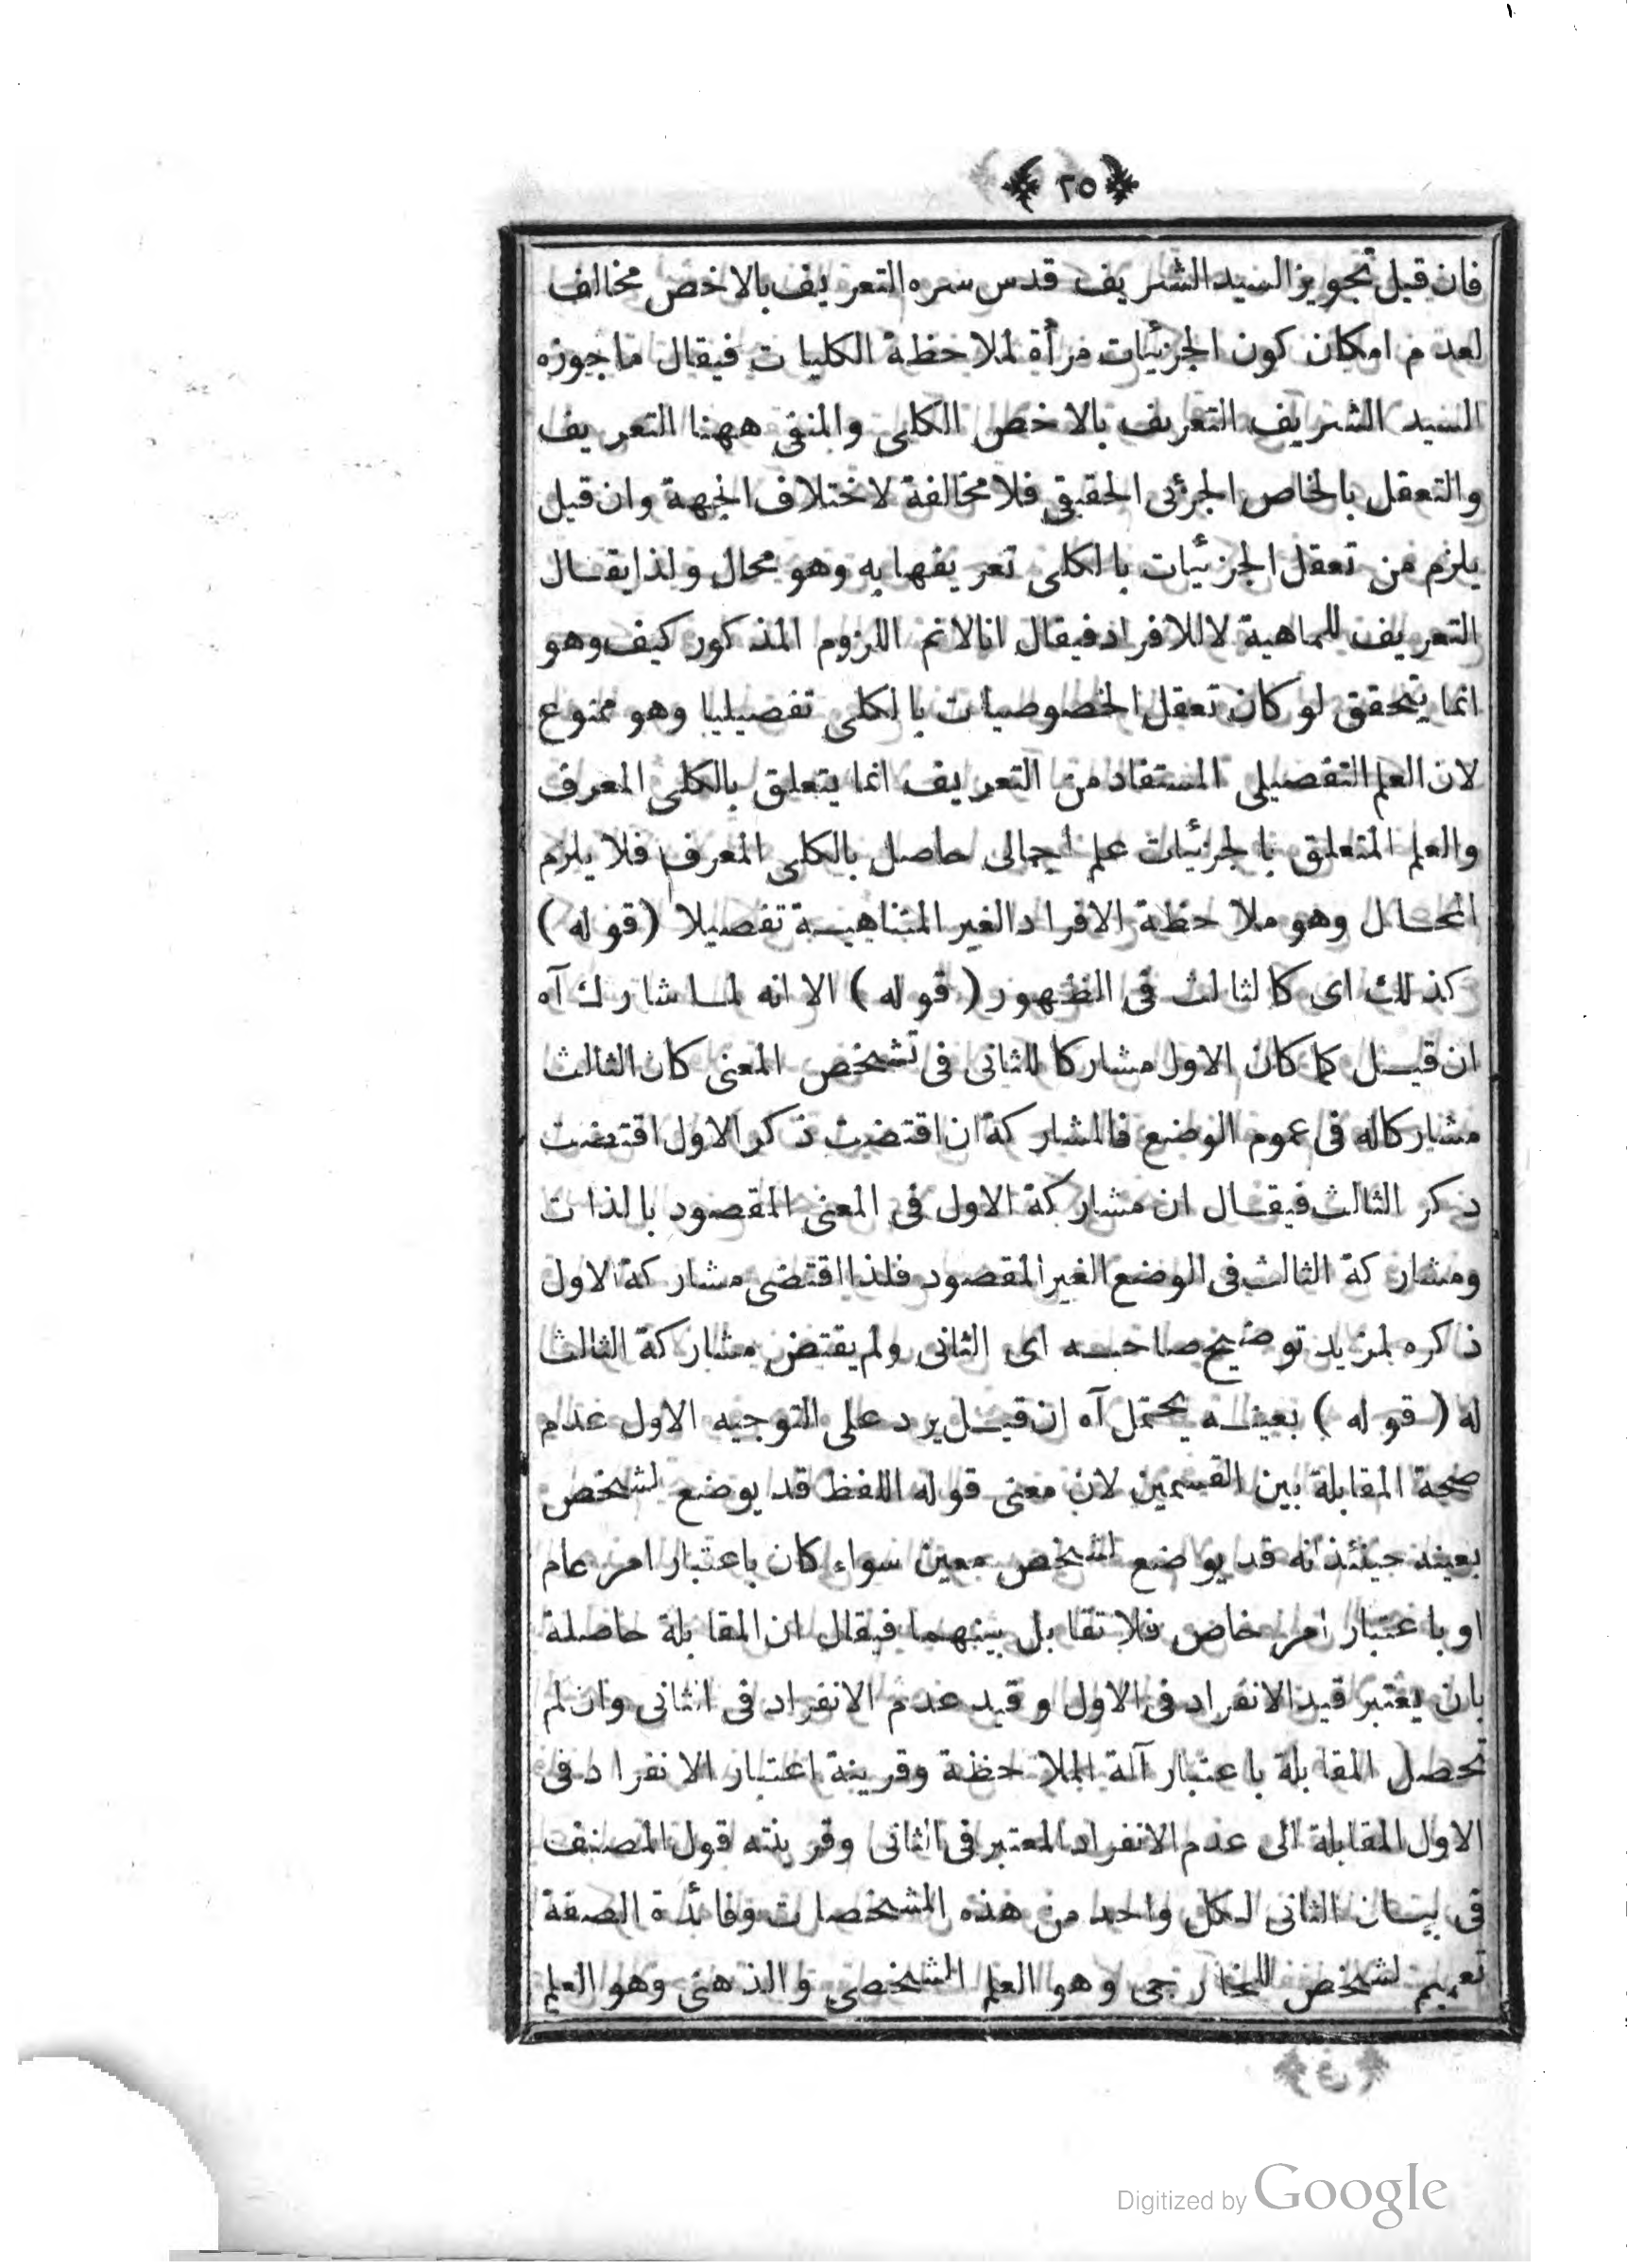 ﴿ ٢٥ ﴾
فان قيل تجويز السيد الشريف قدس سره التعريف بالاخص مخالف
لعدم امكان كون الجزئيات مرأة لملاحظة الكليات فيقال ماجوزه
السيد الشريف التعريف بالاخص الكلى والمنفى ههنا التعريف
والتعقل بالخاص الجزئى الحقيقى فلا مخالفة لاختلاف الجهة وان قيل
يلزم من تعقل الجزئيات بالكلى تعريفها به وهو محال ولذا يقال
التعريف للماهية لا للافراد فيقال انا لانم اللزوم المذكور كيف وهو
انما يتحقق لو كان تعقل الخصوصيات بالكلى تفصيليا وهو ممنوع
لان العلم التفصيلى المستفاد من التعريف انما يتعلق بالكلى المعرف
والعلم المتعلق بالجزئيات علم اجمالى حاصل بالكلى المعرف فلا يلزم
المحال وهو ملاحظة الافراد الغير المتناهية تفصيلا (قوله)
كذلك اى كالثالث فى الظهور (قوله) الا انه لما شارك آه
ان قيل كما كان الاول مشاركا للثانى فى تشخص المعنى كان الثالث
مشاركاله فى عموم الوضع فالمشاركة ان اقتضت ذكر الاول اقتضت
ذكر الثالث فيقال ان مشاركة الاول فى المعنى المقصود بالذات
ومشاركة الثالث فى الوضع الغير المقصود فلذا اقتضى مشاركة الاول
ذكره لمزيد توضيح صاحبه اى الثانى ولم يقتض مشاركة الثالث
له (قوله) بعينه يحتمل آه ان قيل يرد على التوجيه الاول عدم
صحة المقابلة بين القسمين لان معنى قوله اللفظ قد يوضع لشخص
بعينه حينئذ انه قد يوضع لشخص معين سواء كان باعتبار امر عام
او باعتبار امر خاص فلا تقابل بينهما فيقال ان المقابلة حاصلة
بان يعتبر قيد الانفراد فى الاول وقيد عدم الانفراد فى الثانى وان لم
تحصل المقابلة باعتبار آلة الملاحظة وقرينة اعتبار الانفراد فى
الاول المقابلة الى عدم الانفراد المعتبر فى الثانى وقرينته قول المصنف
فى بيان الثانى لكل واحد من هذه المشخصات وفائدة الصفة
تعميم لشخص للخارجى وهو العلم الشخصى والذهنى وهو العلم
Digitized by Google